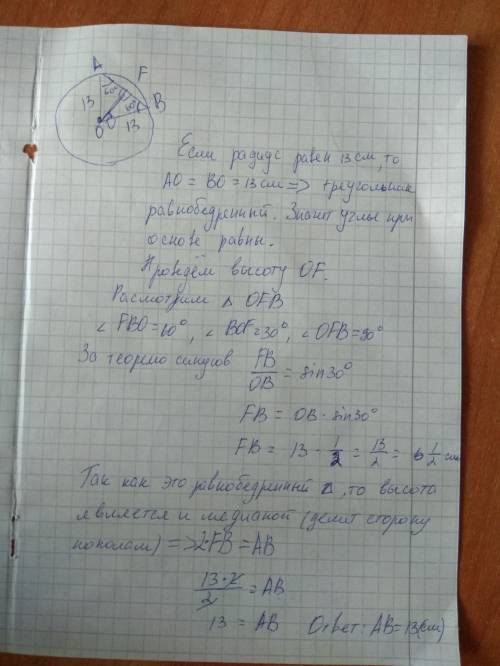 A
F
13
60°
60°
B
O
13
Если радиус равен 13 см, то
AO = BO = 13 см => треугольник
равнобедренный. Значит углы при
основе равны.
Проведём высоту OF.
Расмотрим △ OFB
∠ FBO = 60°, ∠ BOF = 30°, ∠ OFB = 90°
За теоремо синусов FB/OB = sin 30°
FB = OB · sin 30°
FB = 13 · 1/2 = 13/2 = 6 1/2 см
Так как это равнобедренный △, то высота
является и медианой (делит сторону
пополам) => 2·FB = AB
13·2/2 = AB
13 = AB Ответ: AB = 13 (см)